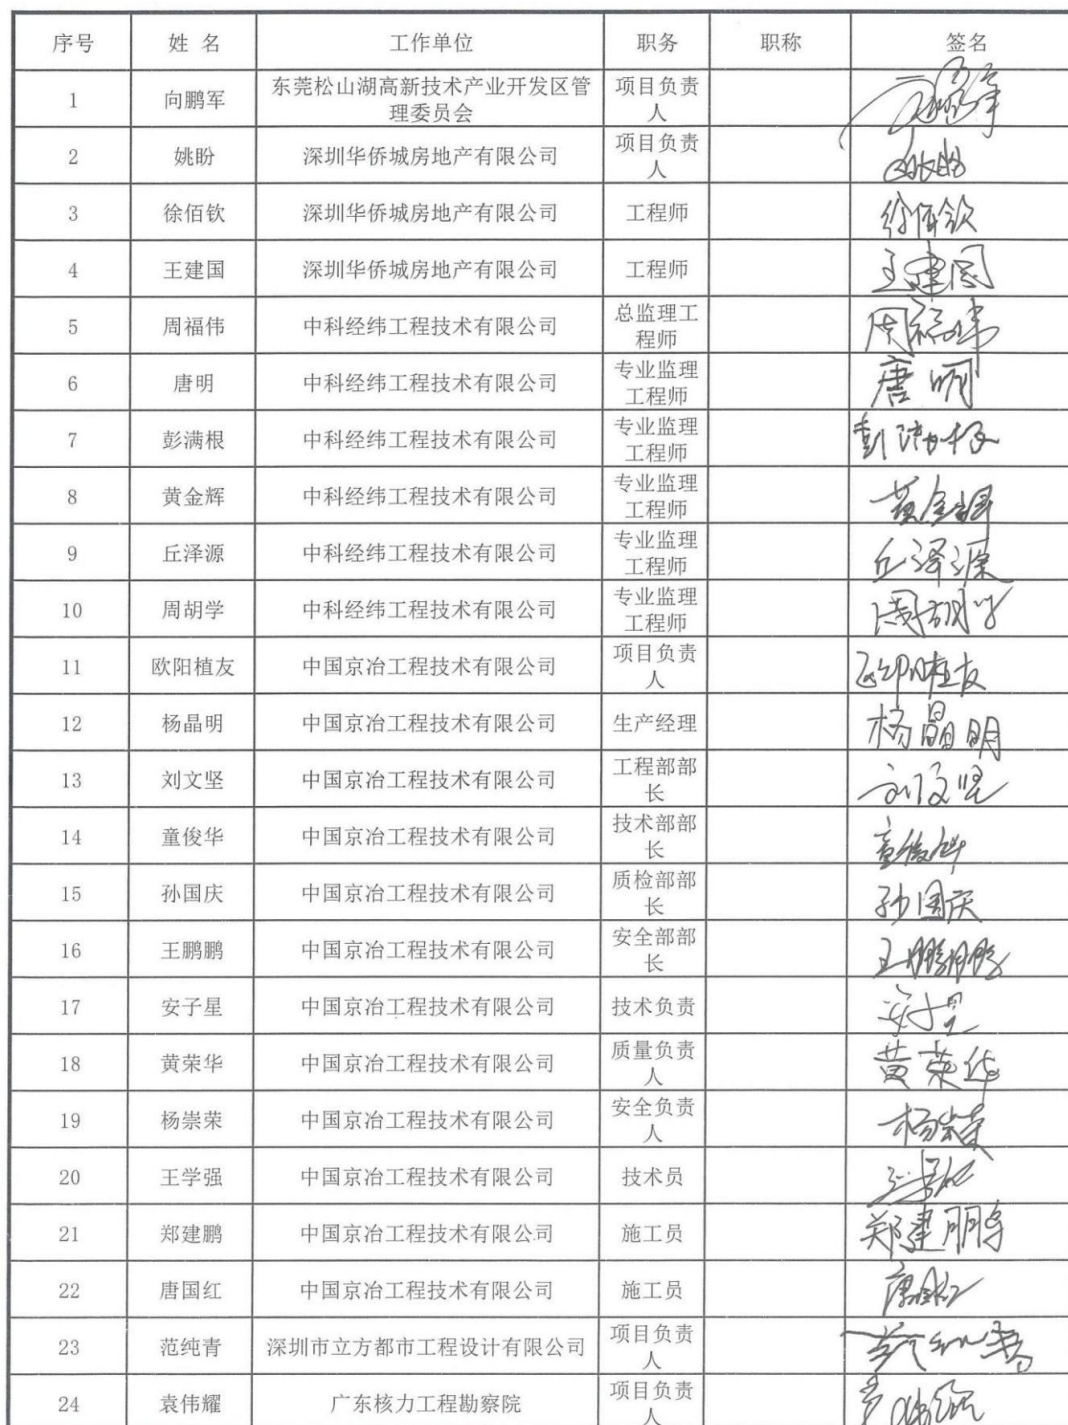 序号 姓 名 工作单位 职务 职称 签名
1 向鹏军 东莞松山湖高新技术产业开发区管 项目负责
理委员会 人
2 姚盼 深圳华侨城房地产有限公司 项目负责
人 姚盼
3 徐佰钦 深圳华侨城房地产有限公司 工程师 徐佰钦
4 王建国 深圳华侨城房地产有限公司 工程师 王建国
5 周福伟 中科经纬工程技术有限公司 总监理工
程师 周福伟
6 唐明 中科经纬工程技术有限公司 专业监理
工程师 唐明
7 彭满根 中科经纬工程技术有限公司 专业监理
工程师 彭满根
8 黄金辉 中科经纬工程技术有限公司 专业监理
工程师 黄金辉
9 丘泽源 中科经纬工程技术有限公司 专业监理
工程师 丘泽源
10 周胡学 中科经纬工程技术有限公司 专业监理
工程师 周胡学
11 欧阳植友 中国京冶工程技术有限公司 项目负责
人 欧阳植友
12 杨晶明 中国京冶工程技术有限公司 生产经理 杨晶明
13 刘文坚 中国京冶工程技术有限公司 工程部部
长 刘文坚
14 童俊华 中国京冶工程技术有限公司 技术部部
长 童俊华
15 孙国庆 中国京冶工程技术有限公司 质检部部
长 孙国庆
16 王鹏鹏 中国京冶工程技术有限公司 安全部部
长 王鹏鹏
17 安子星 中国京冶工程技术有限公司 技术负责 安子星
18 黄荣华 中国京冶工程技术有限公司 质量负责
人 黄荣华
19 杨崇荣 中国京冶工程技术有限公司 安全负责
人 杨崇荣
20 王学强 中国京冶工程技术有限公司 技术员 王学强
21 郑建鹏 中国京冶工程技术有限公司 施工员 郑建鹏
22 唐国红 中国京冶工程技术有限公司 施工员 唐国红
23 范纯青 深圳市立方都市工程设计有限公司 项目负责
人
24 袁伟耀 广东核力工程勘察院 项目负责
人